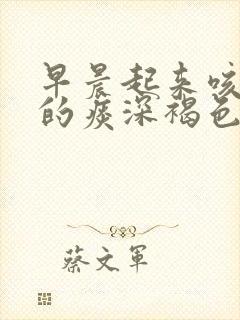 早晨起来咳
的痰深褐色
蔡文军